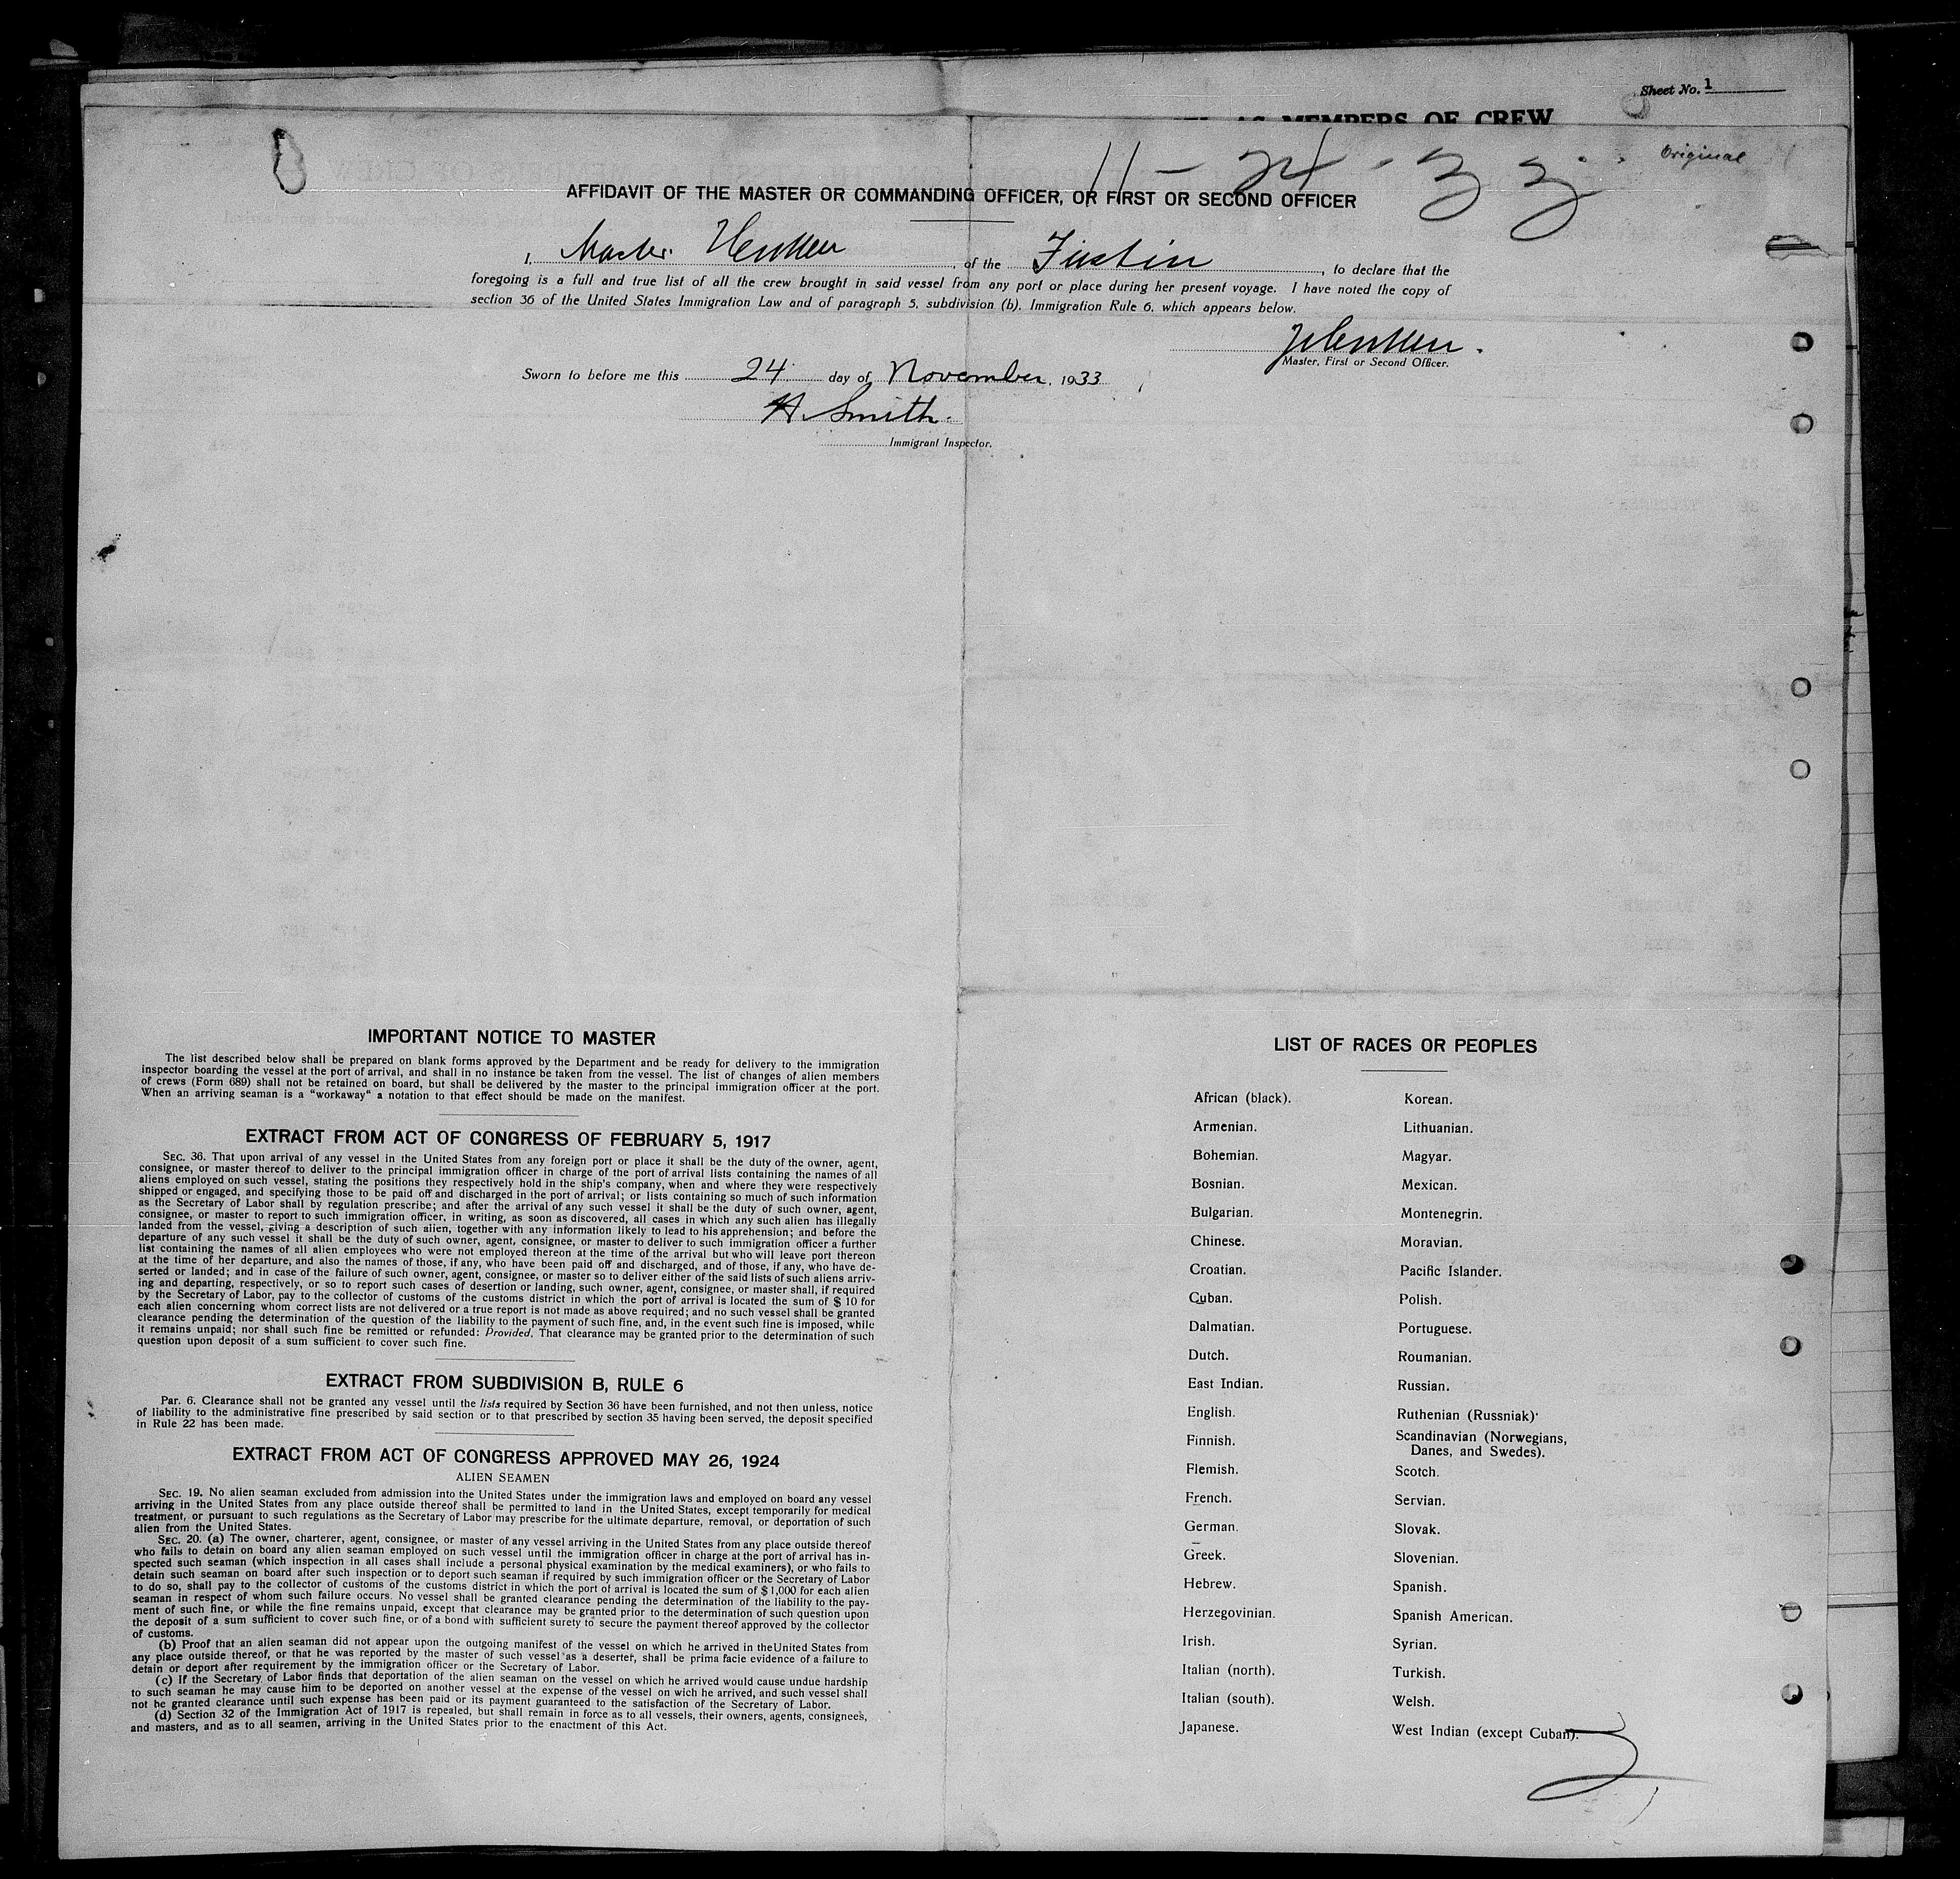 Sheet No. 1
MEMBERS OF CREW
Original
11 - 24 - 33
AFFIDAVIT OF THE MASTER OR COMMANDING OFFICER, OR FIRST OR SECOND OFFICER
I, Master of the , to declare that the
foregoing is a full and true list of all the crew brought in said vessel from any port or place during her present voyage. I have noted the copy of
section 36 of the United States Immigration Law and of paragraph 5, subdivision (b), Immigration Rule 6, which appears below.
Master, First or Second Officer.
Sworn to before me this 24 day of November, 1933
H. Smith.
Immigrant Inspector.
IMPORTANT NOTICE TO MASTER
The list described below shall be prepared on blank forms approved by the Department and be ready for delivery to the immigration
inspector boarding the vessel at the port of arrival, and shall in no instance be taken from the vessel. The list of changes of alien members
of crews (Form 689) shall not be retained on board, but shall be delivered by the master to the principal immigration officer at the port.
When an arriving seaman is a "workaway" a notation to that effect should be made on the manifest.
EXTRACT FROM ACT OF CONGRESS OF FEBRUARY 5, 1917
SEC. 36. That upon arrival of any vessel in the United States from any foreign port or place it shall be the duty of the owner, agent,
consignee, or master thereof to deliver to the principal immigration officer in charge of the port of arrival lists containing the names of all
aliens employed on such vessel, stating the positions they respectively hold in the ship's company, when and where they were respectively
shipped or engaged, and specifying those to be paid off and discharged in the port of arrival; or lists containing so much of such information
as the Secretary of Labor shall by regulation prescribe; and after the arrival of any such vessel it shall be the duty of such owner, agent,
consignee, or master to report to such immigration officer, in writing, as soon as discovered, all cases in which any such alien has illegally
landed from the vessel, giving a description of such alien, together with any information likely to lead to his apprehension; and before the
departure of any such vessel it shall be the duty of such owner, agent, consignee, or master to deliver to such immigration officer a further
list containing the names of all alien employees who were not employed thereon at the time of the arrival but who will leave port thereon
at the time of her departure, and also the names of those, if any, who have been paid off and discharged, and of those, if any, who have de-
serted or landed; and in case of the failure of such owner, agent, consignee, or master so to deliver either of the said lists of such aliens arriv-
ing and departing, respectively, or so to report such cases of desertion or landing, such owner, agent, consignee, or master shall, if required
by the Secretary of Labor, pay to the collector of customs of the customs district in which the port of arrival is located the sum of $ 10 for
each alien concerning whom correct lists are not delivered or a true report is not made as above required; and no such vessel shall be granted
clearance pending the determination of the question of the liability to the payment of such fine, and, in the event such fine is imposed, while
it remains unpaid; nor shall such fine be remitted or refunded: Provided, That clearance may be granted prior to the determination of such
question upon deposit of a sum sufficient to cover such fine.
EXTRACT FROM SUBDIVISION B, RULE 6
Par. 6. Clearance shall not be granted any vessel until the lists required by Section 36 have been furnished, and not then unless, notice
of liability to the administrative fine prescribed by said section or to that prescribed by section 35 having been served, the deposit specified
in Rule 22 has been made.
EXTRACT FROM ACT OF CONGRESS APPROVED MAY 26, 1924
ALIEN SEAMEN
SEC. 19. No alien seaman excluded from admission into the United States under the immigration laws and employed on board any vessel
arriving in the United States from any place outside thereof shall be permitted to land in the United States, except temporarily for medical
treatment, or pursuant to such regulations as the Secretary of Labor may prescribe for the ultimate departure, removal, or deportation of such
alien from the United States.
SEC. 20. (a) The owner, charterer, agent, consignee, or master of any vessel arriving in the United States from any place outside thereof
who fails to detain on board any alien seaman employed on such vessel until the immigration officer in charge at the port of arrival has in-
spected such seaman (which inspection in all cases shall include a personal physical examination by the medical examiners), or who fails to
detain such seaman on board after such inspection or to deport such seaman if required by such immigration officer or the Secretary of Labor
to do so, shall pay to the collector of customs of the customs district in which the port of arrival is located the sum of $ 1,000 for each alien
seaman in respect of whom such failure occurs. No vessel shall be granted clearance pending the determination of the liability to the pay-
ment of such fine, or while the fine remains unpaid, except that clearance may be granted prior to the determination of such question upon
the deposit of a sum sufficient to cover such fine, or of a bond with sufficient surety to secure the payment thereof approved by the collector
of customs.
(b) Proof that an alien seaman did not appear upon the outgoing manifest of the vessel on which he arrived in theUnited States from
any place outside thereof, or that he was reported by the master of such vessel as a deserter, shall be prima facie evidence of a failure to
detain or deport after requirement by the immigration officer or the Secretary of Labor.
(c) If the Secretary of Labor finds that deportation of the alien seaman on the vessel on which he arrived would cause undue hardship
to such seaman he may cause him to be deported on another vessel at the expense of the vessel on wich he arrived, and such vessel shall
not be granted clearance until such expense has been paid or its payment guaranteed to the satisfaction of the Secretary of Labor.
(d) Section 32 of the Immigration Act of 1917 is repealed, but shall remain in force as to all vessels, their owners, agents, consignees,
and masters, and as to all seamen, arriving in the United States prior to the enactment of this Act.
LIST OF RACES OR PEOPLES
African (black).
Armenian.
Bohemian.
Bosnian.
Bulgarian.
Chinese.
Croatian.
Cuban.
Dalmatian.
Dutch.
East Indian.
English.
Finnish.
Flemish.
French.
German.
Greek.
Hebrew.
Herzegovinian.
Irish.
Italian (north).
Italian (south).
Japanese.
Korean.
Lithuanian.
Magyar.
Mexican.
Montenegrin.
Moravian.
Pacific Islander.
Polish.
Portuguese.
Roumanian.
Russian.
Ruthenian (Russniak)
Scandinavian (Norwegians,
Danes, and Swedes).
Scotch.
Servian.
Slovak.
Slovenian.
Spanish.
Spanish American.
Syrian.
Turkish.
Welsh.
West Indian (except Cuban).